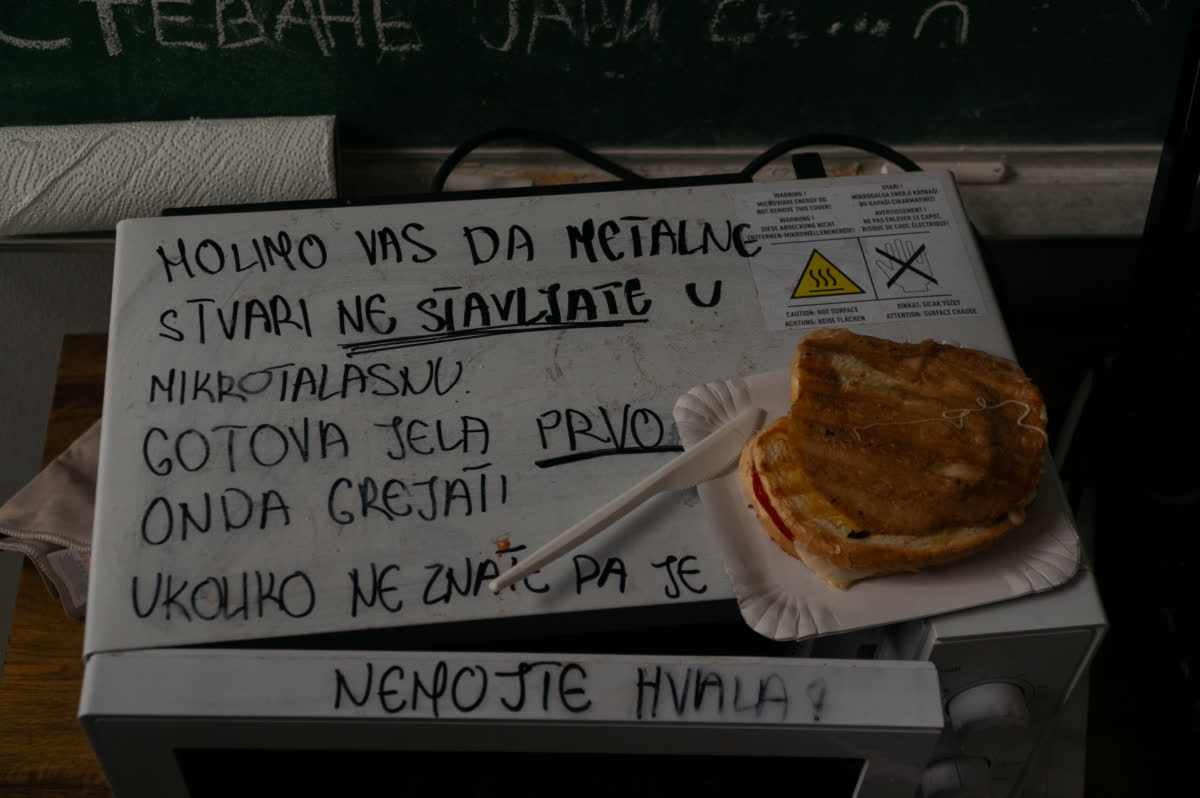 СТЕВАНЕ ЈАВИ СЕ....
MOLIMO VAS DA METALNE
STVARI NE STAVLJATE U
MIKROTALASNU.
GOTOVA JELA PRVO
ONDA GREJATI
UKOLIKO NE ZNATE DA JE
NEMOJTE HVALA!
WARNING !
MICROWAVE ENERGY DO
NOT REMOVE THIS COVER!
WARNUNG !
DIESE ABDECKUNG NICHT
ENTFERNEN-MIKROWELLENENERGIE!
UYARI !
MIKRODALGA ENERJİ KAYNAĞI
BU KAPAĞI ÇIKARMAYINIZ!
AVERTISSEMENT !
NE PAS ENLEVER LE CAPOT,
RISQUE DE CHOC ÉLECTRIQUE!
CAUTION: HOT SURFACE
ACHTUNG: HEIßE FLÄCHEN
DİKKAT: SICAK YÜZEY
ATTENTION: SURFACE CHAUDE